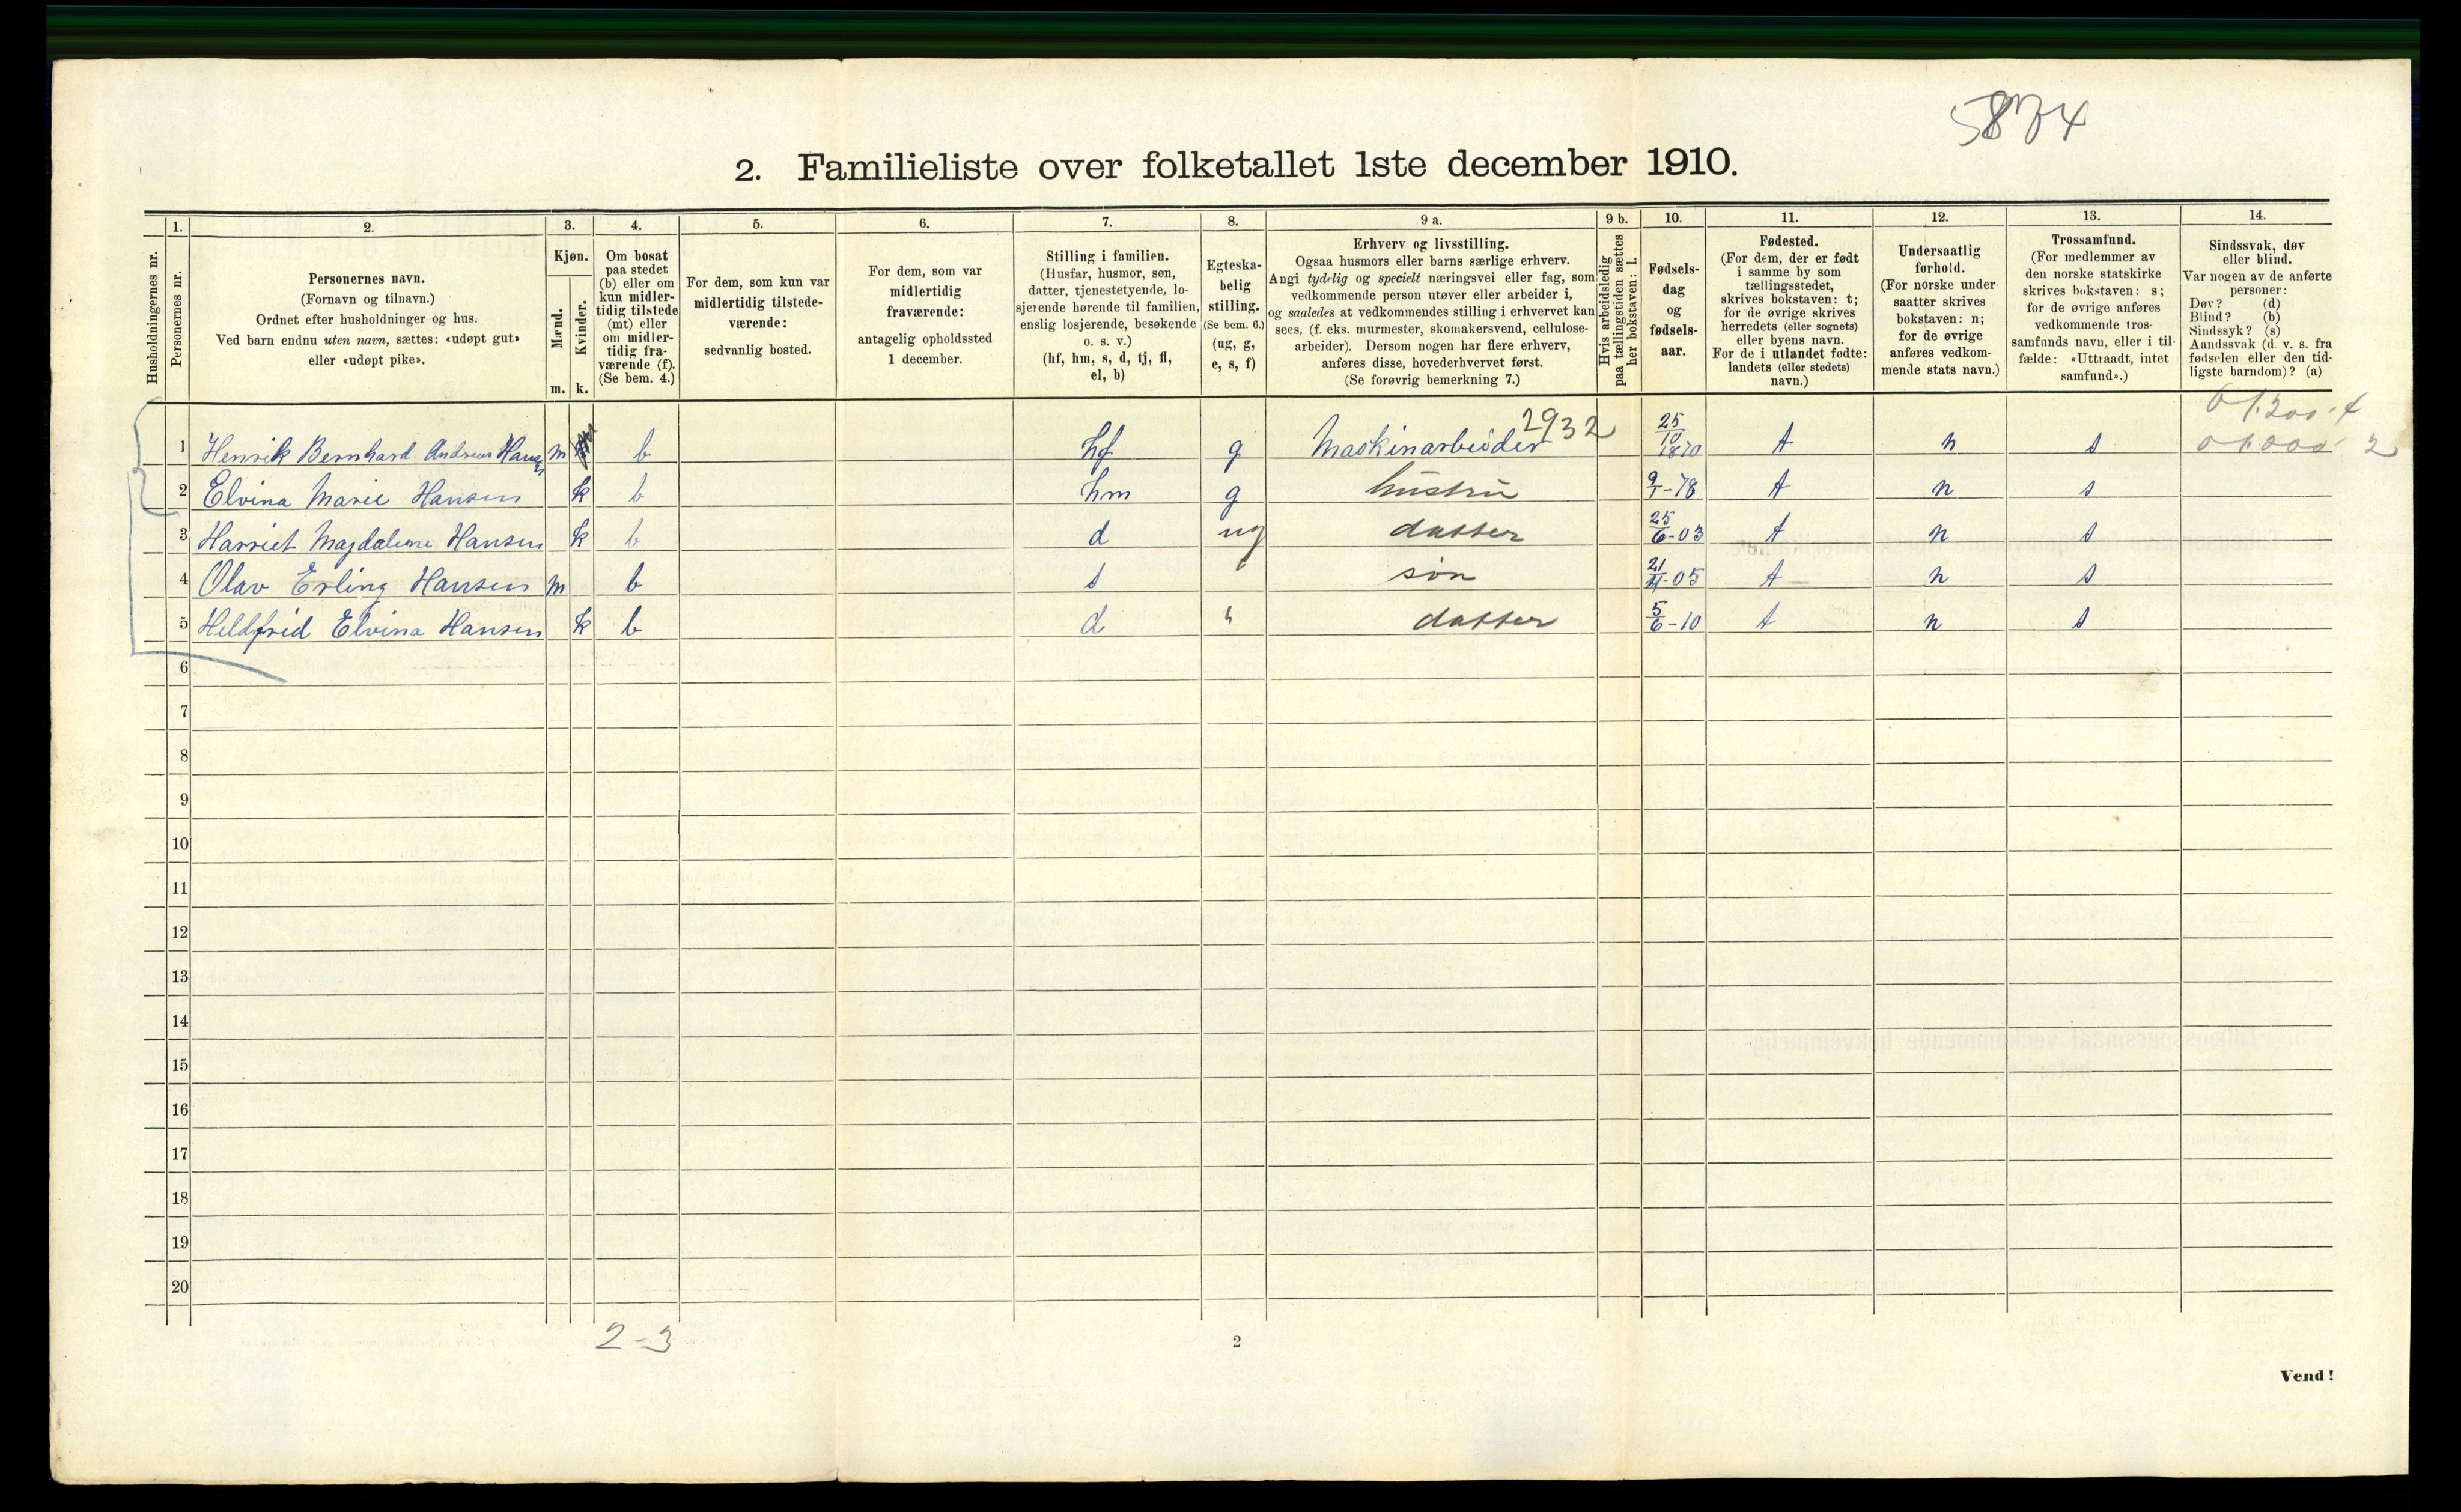 5874
2. Familieliste over folketallet 1ste december 1910.
Husholdningernes nr.
1. Personernes nr.
2. Personernes navn. (Fornavn og tilnavn.) Ordnet efter husholdninger og hus. Ved barn endnu uten navn, sættes: «udøpt gut» eller «udøpt pike».
3. Kjøn. Mænd. m. Kvinder. k.
4. Om bosat paa stedet (b) eller om kun midlertidig tilstede (mt) eller om midlertidig fraværende (f). (Se bem. 4.)
5. For dem, som kun var midlertidig tilstedeværende: sedvanlig bosted.
6. For dem, som var midlertidig fraværende: antagelig opholdssted 1 december.
7. Stilling i familien. (Husfar, husmor, søn, datter, tjenestetyende, losjerende hørende til familien, enslig losjerende, besøkende o. s. v.) (hf, hm, s, d, tj, fl, el, b)
8. Egteskabelig stilling. (Se bem. 6.) (ug, g, e, s, f)
9 a. Erhverv og livsstilling. Ogsaa husmors eller barns særlige erhverv. Angi tydelig og specielt næringsvei eller fag, som vedkommende person utøver eller arbeider i, og saaledes at vedkommendes stilling i erhvervet kan sees, (f. eks. murmester, skomakersvend, cellulosearbeider). Dersom nogen har flere erhverv, anføres disse, hovederhvervet først. (Se forøvrig bemerkning 7.)
9 b. Hvis arbeidsledig paa tællingstiden sættes her bokstaven: l.
10. Fødselsdag og fødselsaar.
11. Fødested. (For dem, der er født i samme by som tællingsstedet, skrives bokstaven: t; for de øvrige skrives herredets (eller sognets) eller byens navn. For de i utlandet fødte: landets (eller stedets) navn.)
12. Undersaatlig forhold. (For norske undersaatter skrives bokstaven: n; for de øvrige anføres vedkommende stats navn.)
13. Trossamfund. (For medlemmer av den norske statskirke skrives bokstaven: s; for de øvrige anføres vedkommende trossamfunds navn, eller i tilfælde: «Uttraadt, intet samfund».)
14. Sindssvak, døv eller blind. Var nogen av de anførte personer: Døv? (d) Blind? (b) Sindssyk? (s) Aandssvak (d. v. s. fra fødselen eller den tidligste barndom)? (a)
1 Henrik Bernhard Andreas Hansen m b hf g Maskinarbeider 2932 25/10 1870 t n s
2 Elvina Marie Hansen k b hm g hustru 9/1-78 t n s
3 Harriet Magdalene Hansen k b d ug datter 25/6-03 t n s
4 Olav Erling Hansen m b s " søn 21/11-05 t n s
5 Heldfrid Elvina Hansen k b d " datter 5/6-10 t n s
6
7
8
9
10
11
12
13
14
15
16
17
18
19
20
2-3
2
Vend!